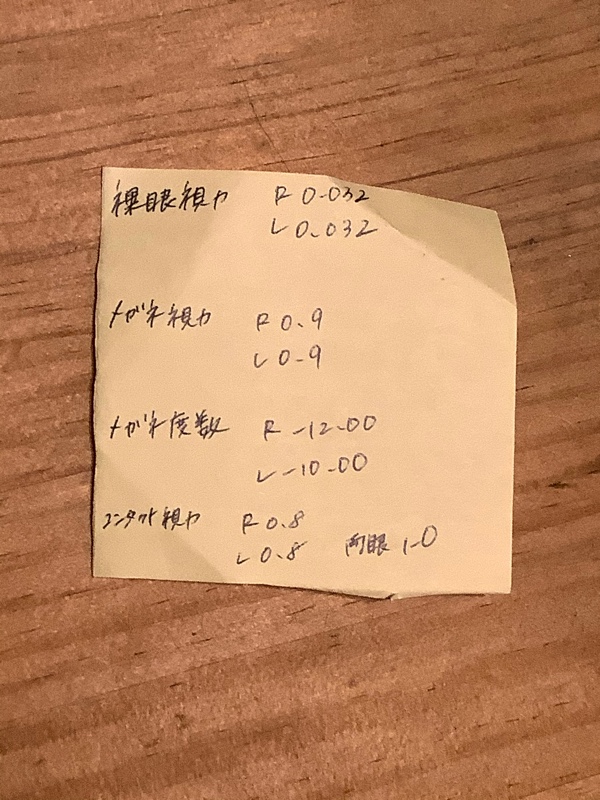 裸眼視力 R 0.032
L 0.032
メガネ視力 R 0.9
L 0.9
メガネ度数 R -12.00
L -10.00
コンタクト視力 R 0.8
L 0.8 両眼 1.0